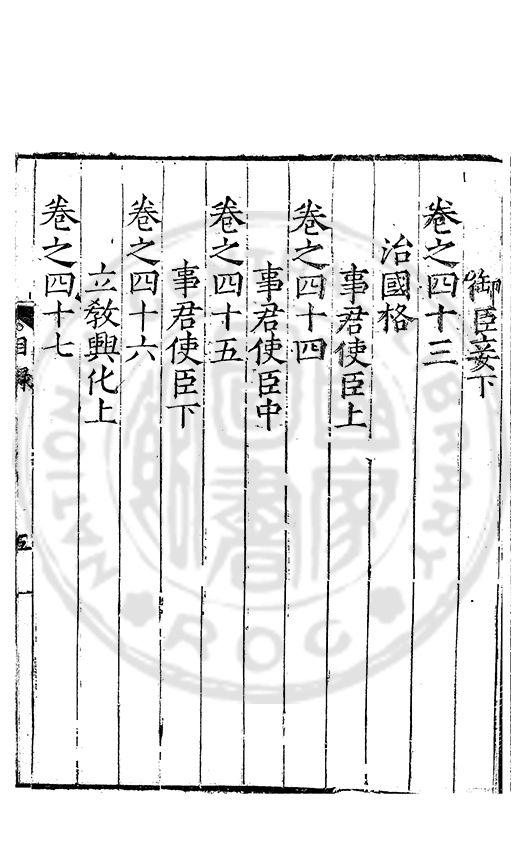 御臣妾下
卷之四十三
治國格
事君使臣上
卷之四十四
事君使臣中
卷之四十五
事君使臣下
卷之四十六
立教興化上
卷之四十七
目錄
五
國家圖書館
NATIONAL
LIBRARY
ROC